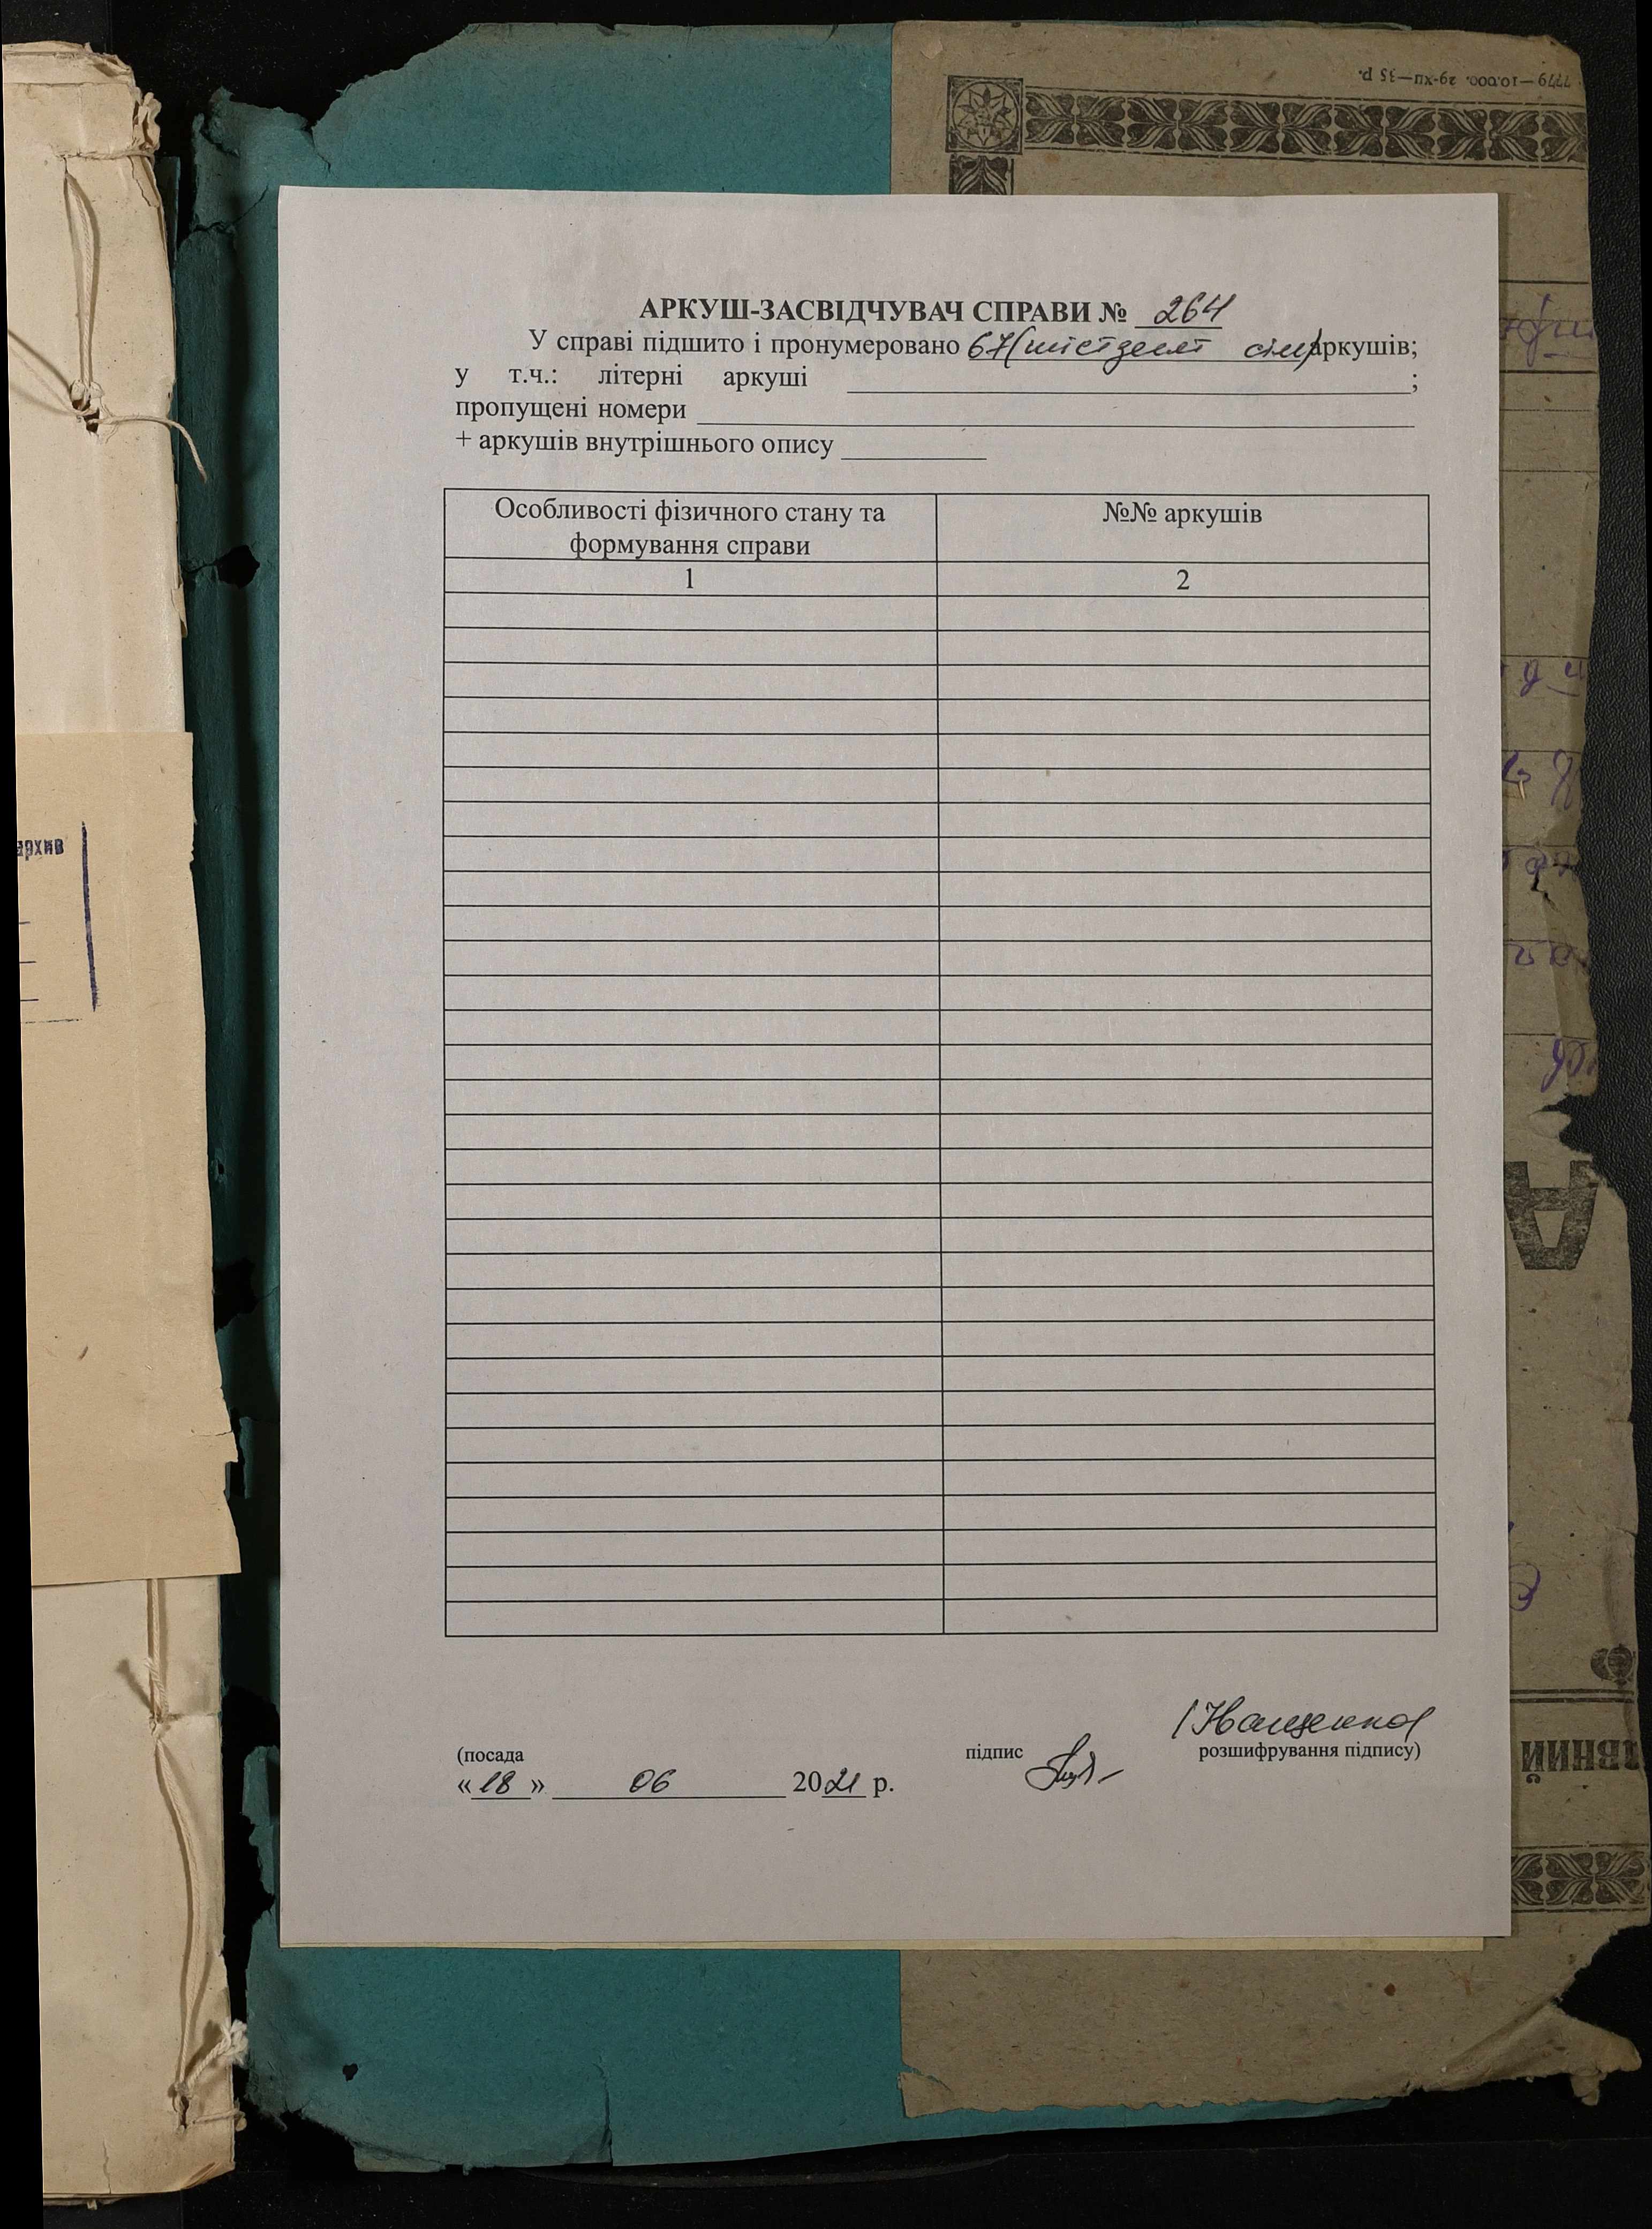 7779—10.000. 29-XII—35 р.
АРКУШ-ЗАСВІДЧУВАЧ СПРАВИ № 264
У справі підшито і пронумеровано 67 (шістдесят сім) аркушів;
у т.ч.: літерні аркуші ;
пропущені номери
+ аркушів внутрішнього опису
Особливості фізичного стану та
формування справи
№№ аркушів
1 2
архив
(Іващенко)
(посада підпис розшифрування підпису)
«18» 06 2021 р.